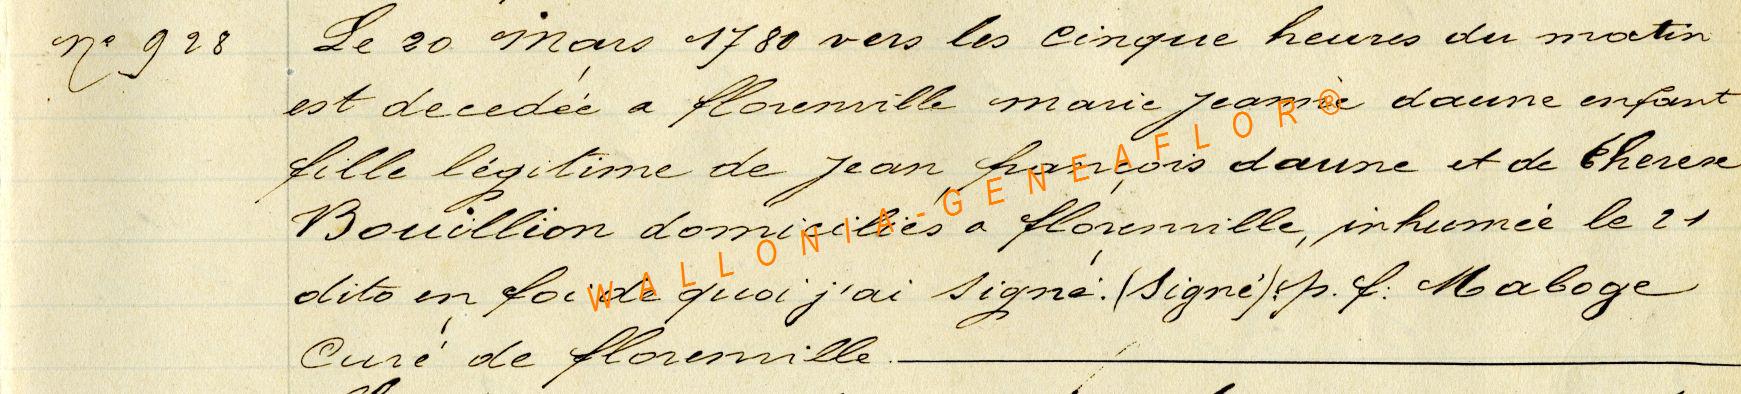 N° 928 Le 20 mars 1780 vers les cinque heures du matin
est decedée a florenville marie jeanne daune enfant
fille légitime de jean françois daune et de therese
Bouillion domiciliés a florenville, inhumée le 21
dito en foi de quoi j'ai signé. (signé): p. f: Maboge
Curé de florenville.
WALLONIA-GENEAFLOR®